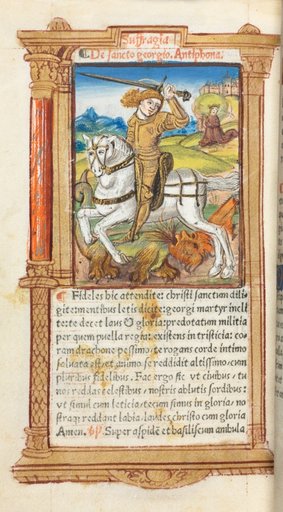 Suffragia
De sancto georgio. Antiphona.
Fideles hic attendite: christi sanctum dili
gite: mentibus letis dicite: georgi martyr incli
te: te decet laus & gloria: predotatum militia
per quem puella regia: existens in tristicia: co
ram drachone pessimo: te rogans corde intimo
saluata est: et animo se reddidit altissimo. cum
pluribus fidelibus. Fac ergo sic vt ciuibus: iu
nói reddas celestibus: nostris ablutis sordibus:
vt simul cum leticia: tecum simus in gloria: no
straq; reddant labia: laudes christo cum gloria
Amen. Super aspidē et basiliscum ambula